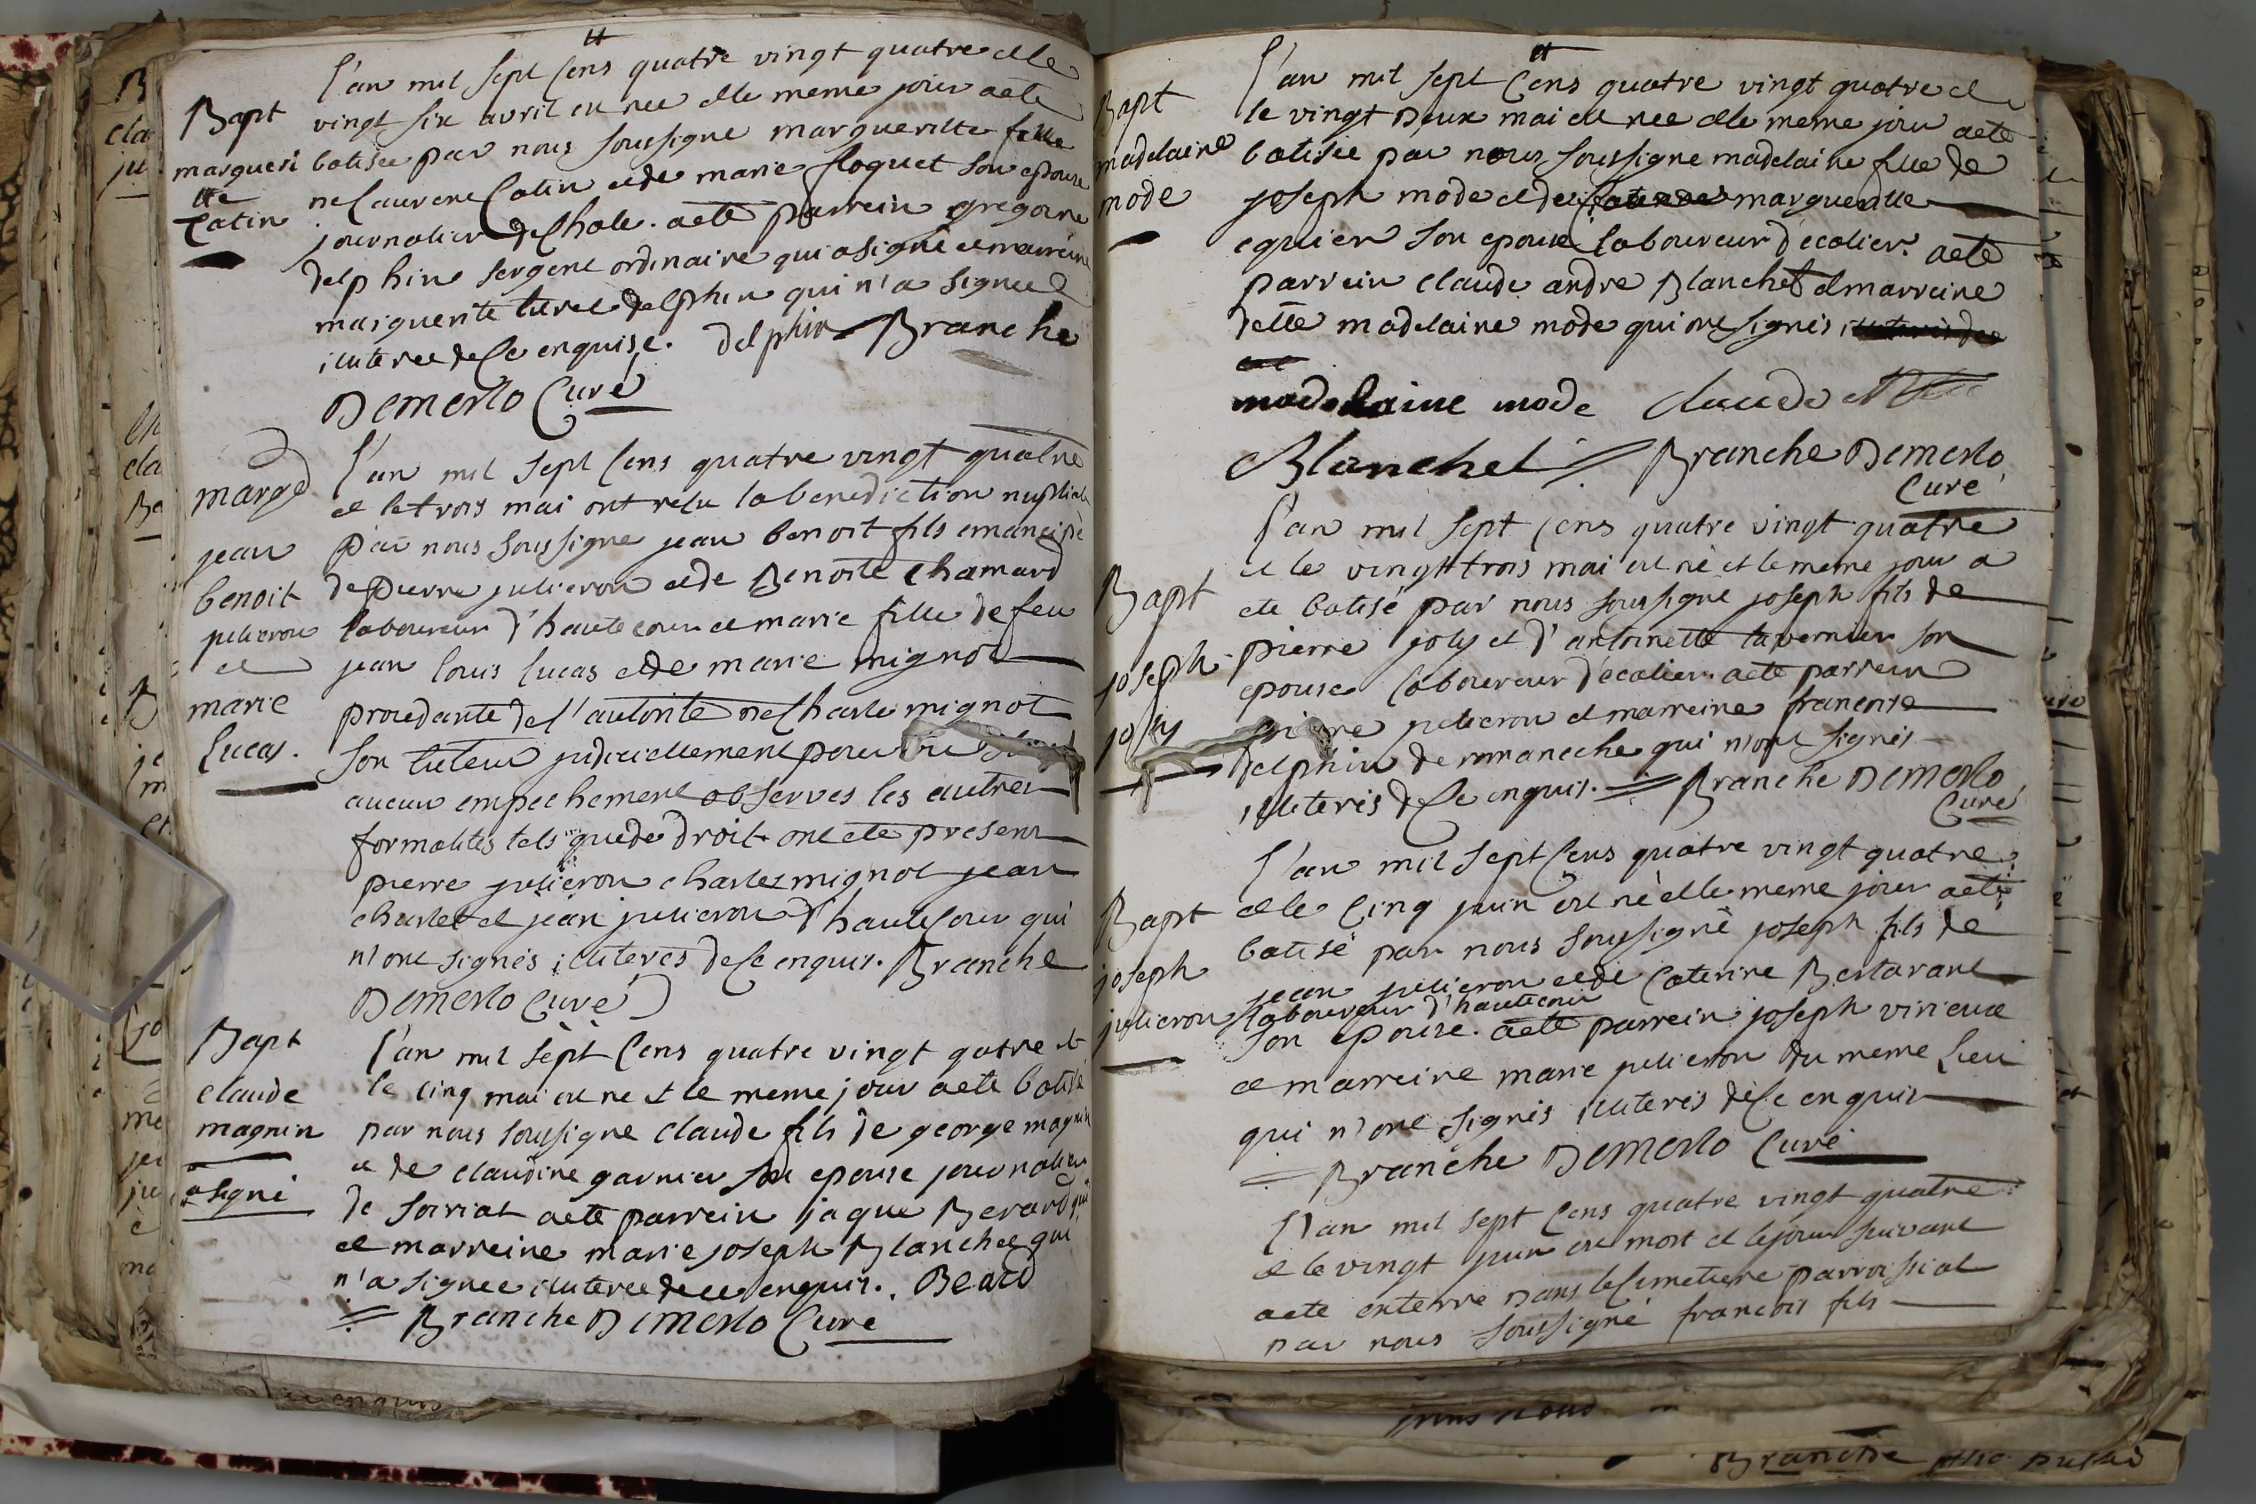 l'an mil sept Cens quatre vingt quatre et le
Bapt
margueri
tte
Catin
vingt six avril est nee et le meme jour a ete
batisée par nous soussigné margueritte fille
de laurent Catin et de marie floquet son epouse
journalier de Chale. a ete parrein gregoire
delphin sergent ordinaire qui a signé et marreine
marguerite turel delphin qui n'a signee
illiteree de ce enquise. delphin Branche
Demerlo Curé
marge
jean
benoit
julieron
et
marie
Lucas.
l'an mil sept Cens quatre vingt quatre
et le trois mai ont reçu la benediction nuptiale
par nous soussigné jean benoit fils emancipé
de pierre julieron et de Benoite Chamard
laboureur d'hautecour et marie fille de feu
jean louis lucas et de marie mignot
procedante de l'autorité de Charle mignot
son tuteur judiciellement pourvu
aucun empechement observes les autres
formalités tels que de droit ont ete presens
pierre julieron charles mignot jean
charlet et jean julieron d'hautecour qui
n'ont signés illiteres de ce enquis. Branche
Demerlo Curé
Bapt
claude
magnin
a signé
l'an mil sept Cens quatre vingt qatre et
le cinq mai est ne et le meme jour a ete batisé
par nous soussigne claude fils de george magnin
et de claudine garnier son epouse journalier
de soiriat a ete parrein jaque Berard qui
et marreine marie joseph Blanchet qui
n'a signee illiteree de ce enquis. Beard
Branche Demerlo Curé
Bapt
madelaine
mode
l'an mil sept Cens quatre vingt quatre et
le vingt Deux mai est nee et le meme jour a ete
batisée par nous soussigne madelaine fille de
joseph mode et de marguerdtte
equier son epouse laboureur d'ecolier. a ete
parrein claude andre Blanchet et marreine
dette madelaine mode qui ont signés
madelaine mode claude
Blanchet Branche Demerlo
Curé
Bapt
joseph
joly
l'an mil sept Cens quatre vingt quatre
et le vingt trois mai est né et le meme jour a
ete batisé par nous soussigné joseph fils de
pierre joly et d'antoinette tavernier son
epouse laboureur d'ecolier a ete parrein
pierre julieron et marreine francoise
delphin de romaneche qui n'ont signés
illiterés de ce enquis. Branche Demerlo
Curé
Bapt
joseph
julieron
l'an mil sept Cens quatre vingt quatre
et le Cinq juin est né et le meme jour a eté
batisé par nous soussigné joseph fils de
jean julieron et de Caterine Bertavant
laboureur d'hautecour
son epouse. a ete parrein joseph virieux
et marreine marie julieron du meme Lieu
qui n'ont signés illiterés de ce enquis
Branche Demerlo Curé
l'an mil sept Cens quatre vingt quatre
et le vingt juin est mort et le jour suivant
a ete enterre Dans le Cimetiere parroissial
par nous soussigné francois fils